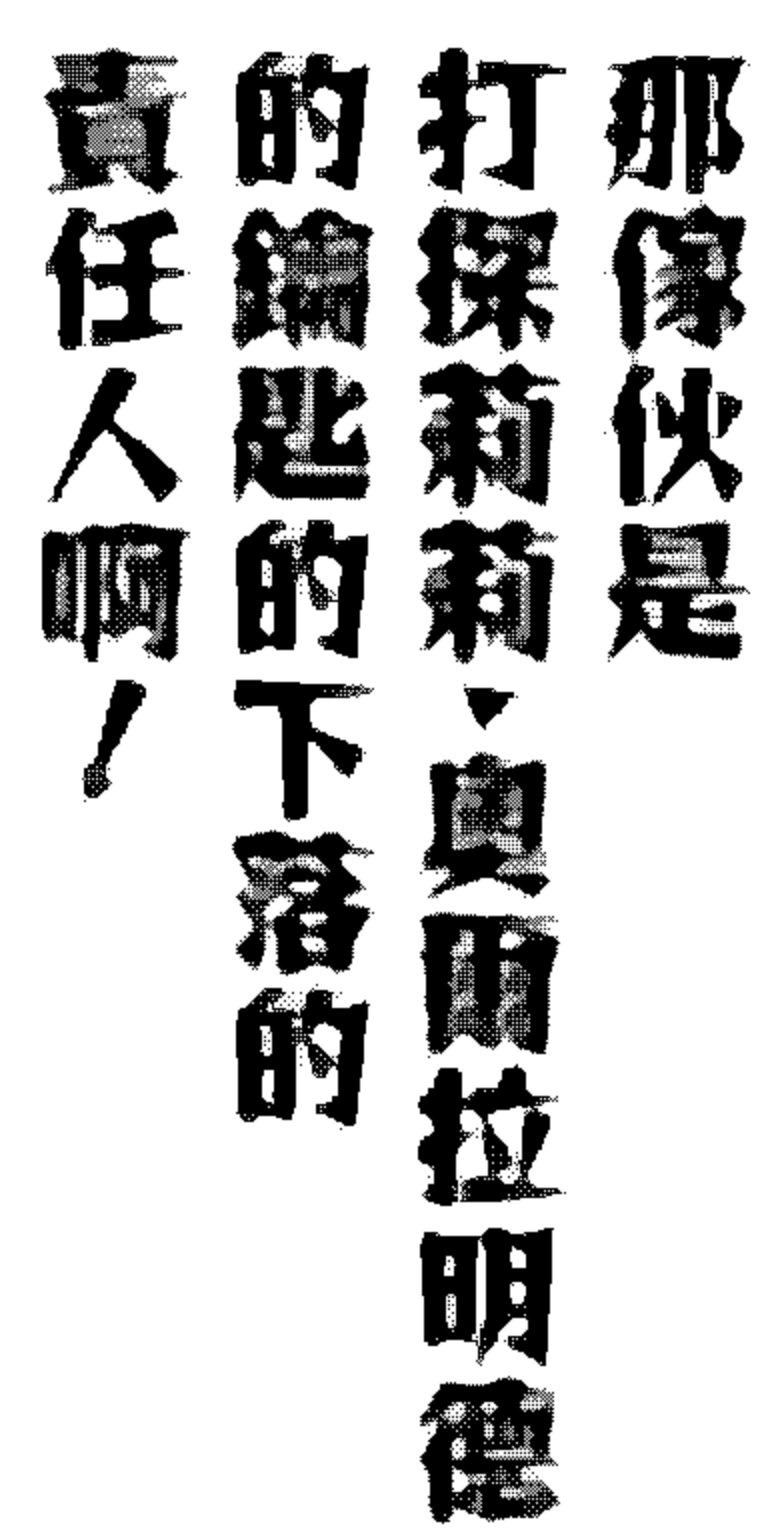 那傢伙是
打探莉莉・奧爾拉明德
的鑰匙的下落的
責任人啊！